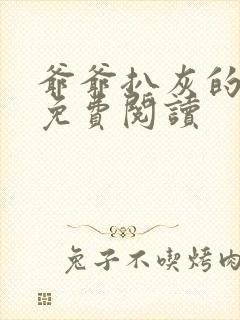 爺爺扒灰的
免費閱讀
兔子不喫烤肉